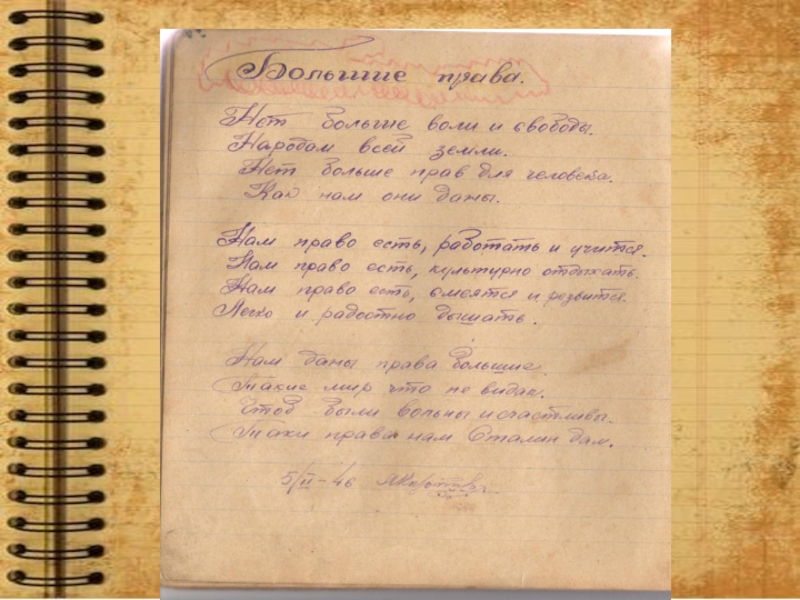 Большие права.
Нет больше воли и свободы.
Народам всей земли.
Нет больше прав для человека.
Как нам они даны.
Нам право есть, работать и учится.
Нам право есть, культурно отдыхать.
Нам право есть, смеятся и резвится.
Легко и радостно дышать.
Нам даны права большие.
Такие мир что не видал.
Чтоб были вольны и счастливы.
Таки права нам Сталин дал.
5/II-46